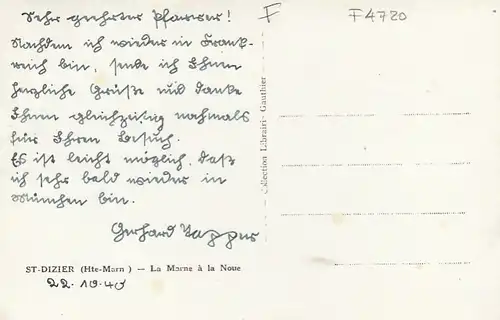 Sehr geehrter Pfarrer!
Nachdem ich wieder in Frank-
reich bin, sende ich Ihnen
herzliche Grüße und danke
Ihnen gleichzeitig nochmals
für Ihren Besuch.
Es ist leicht möglich, daß
ich sehr bald wieder in
München bin.
Gerhard
F
F4720
Collection Librairi- Gauthier
ST-DIZIER (Hte-Marn ) — La Marne à la Noue
22.10.40